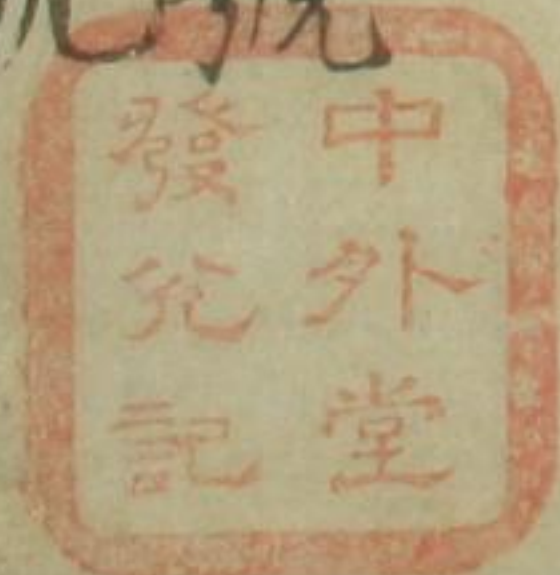 中外堂
發兌記